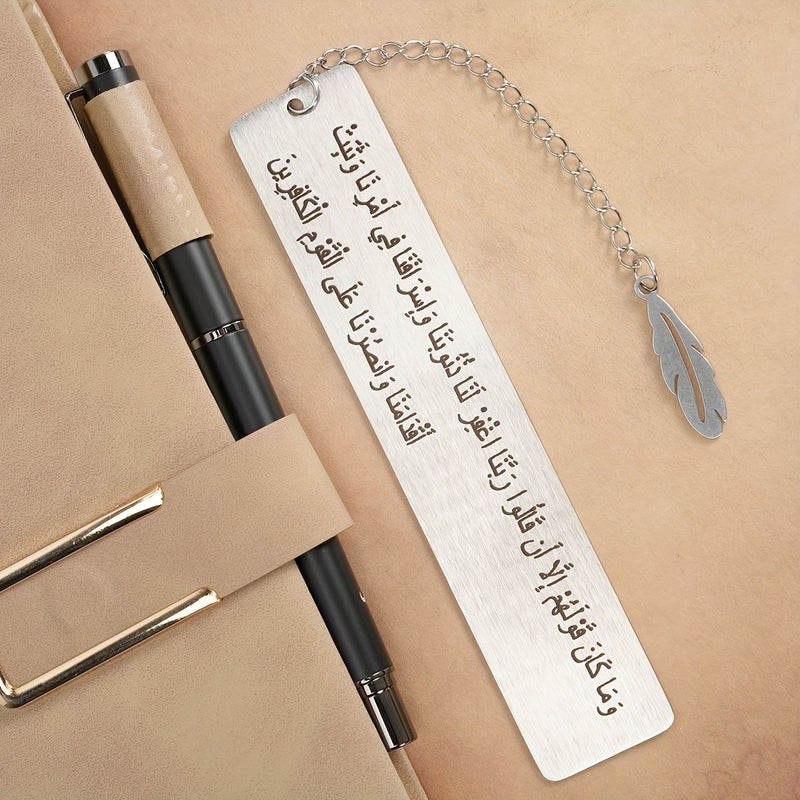 وَمَا كَانَ قَوْلَهُمْ إِلَّا أَن قَالُوا رَبَّنَا اغْفِرْ لَنَا ذُنُوبَنَا وَإِسْرَافَنَا فِي أَمْرِنَا وَثَبِّتْ
أَقْدَامَنَا وَانصُرْنَا عَلَى الْقَوْمِ الْكَافِرِينَ